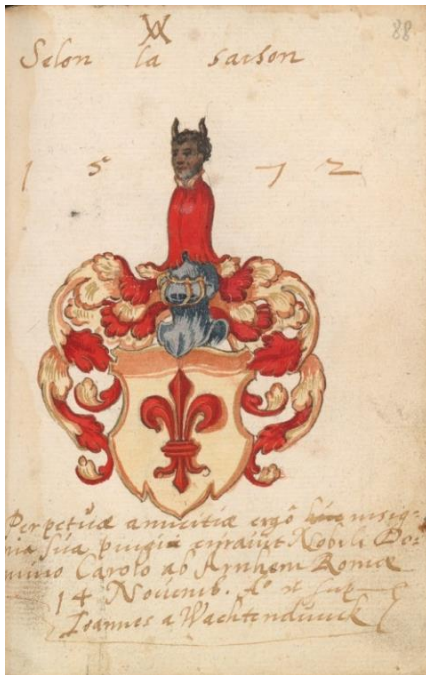 88
Selon la saison
1572
Perpetuæ amicitiæ ergô insig-
nia sua pingi curauit Nobili Do-
mino Carolo ab Arnhem Romæ
14 Nouemb. Aº vt sup
Ioannes a Wachtendunck